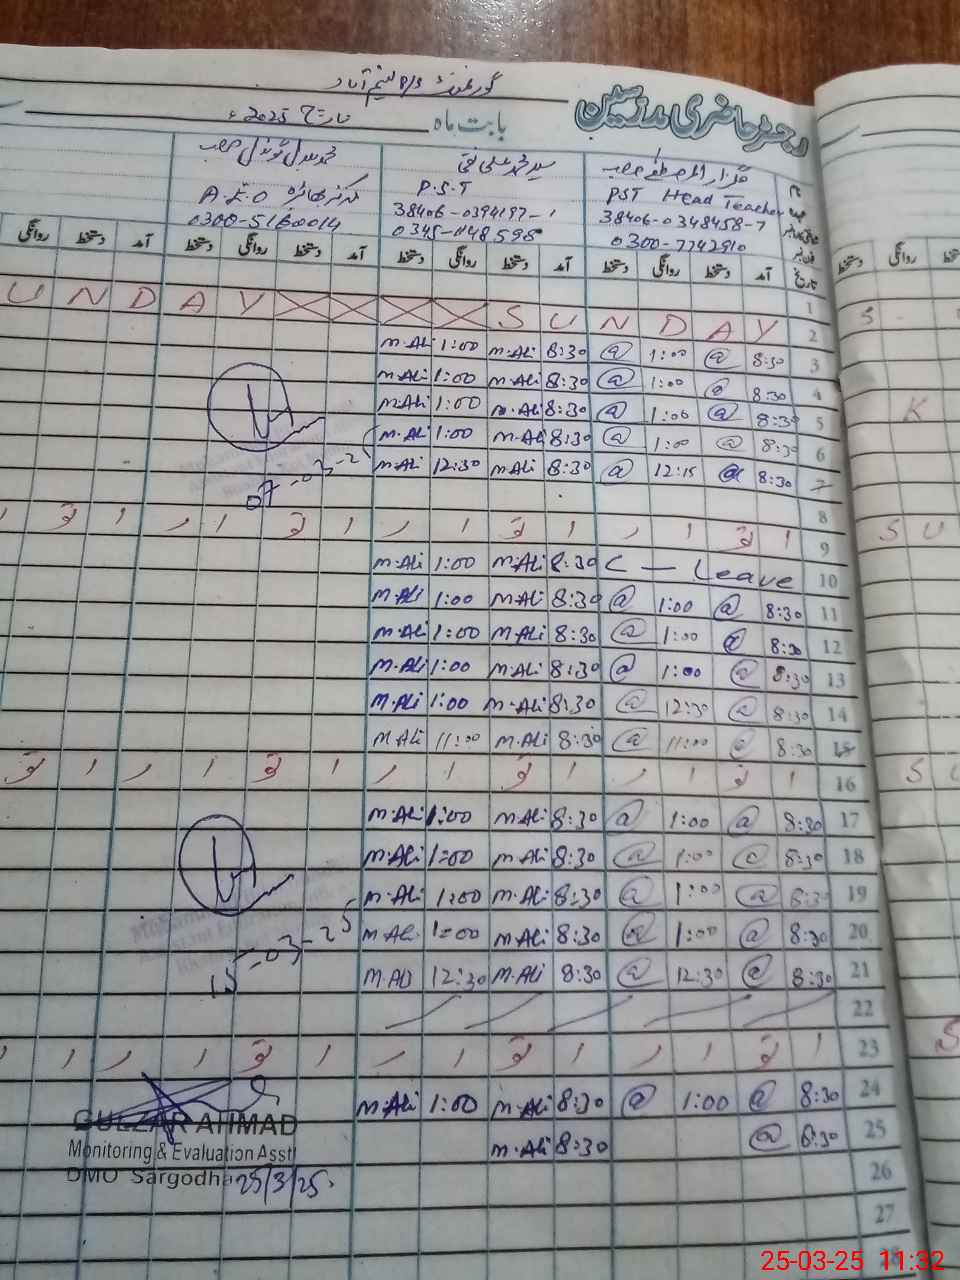 گورنمنٹ P/S نسیم آباد
رجسٹر حاضری مدرسین
بابت ماہ
تاریخ 2025ء
نام
PST Head Teacher
38406-0348458-7
0300-7742910
P.S.T
38406-0394197-1
0345-
A.E.O
0300-5160014
تاریخ آمد دستخط روانگی دستخط آمد دستخط روانگی دستخط آمد دستخط روانگی
1
2 SUNDAY SUNDAY
3 8:30 @ 1:00 @ 8:30 M.Ali 1:00 M.Ali
4 8:30 @ 1:00 @ 8:30 M.Ali 1:00 M.Ali
5 8:30 @ 1:00 @ 8:30 M.Ali 1:00 M.Ali
6 8:30 @ 1:00 @ 8:30 M.Ali 1:00 M.Ali
7 8:30 @ 12:15 @ 8:30 M.Ali 12:30 M.Ali
07-03-25
8
9 ا تو ا ر ا تو ا ر ا تو ا ر
10 C — Leave 8:30 M.Ali 1:00 M.Ali
11 8:30 @ 1:00 @ 8:30 M.Ali 1:00 M.Ali
12 8:30 @ 1:00 @ 8:30 M.Ali 1:00 M.Ali
13 8:30 @ 1:00 @ 8:30 M.Ali 1:00 M.Ali
14 8:30 @ 12:30 @ 8:30 M.Ali 1:00 M.Ali
15 8:30 @ 11:00 @ 8:30 M.Ali 11:00 M.Ali
16 ا تو ا ر ا تو ا ر ا تو ا ر
17 8:30 @ 1:00 @ 8:30 M.Ali 1:00 M.Ali
18 8:30 @ 1:00 @ 8:30 M.Ali 1:00 M.Ali
19 8:30 @ 1:00 @ 8:30 M.Ali 1:00 M.Ali
20 8:30 @ 1:00 @ 8:30 M.Ali 1:00 M.Ali
21 8:30 @ 12:30 @ 8:30 M.Ali 12:30 M.Ali
15-03-25
22
23 ا تو ا ر ا تو ا ر ا تو ا ر
24 8:30 @ 1:00 @ 8:30 M.Ali 1:00 M.Ali
25 8:30 @ 8:30 M.Ali
26
27
GULZAR AHMAD
Monitoring & Evaluation Asstt
DMO Sargodha 25/3/25
دستخط روانگی
S
K
S U
S U
S
25-03-25 11:32